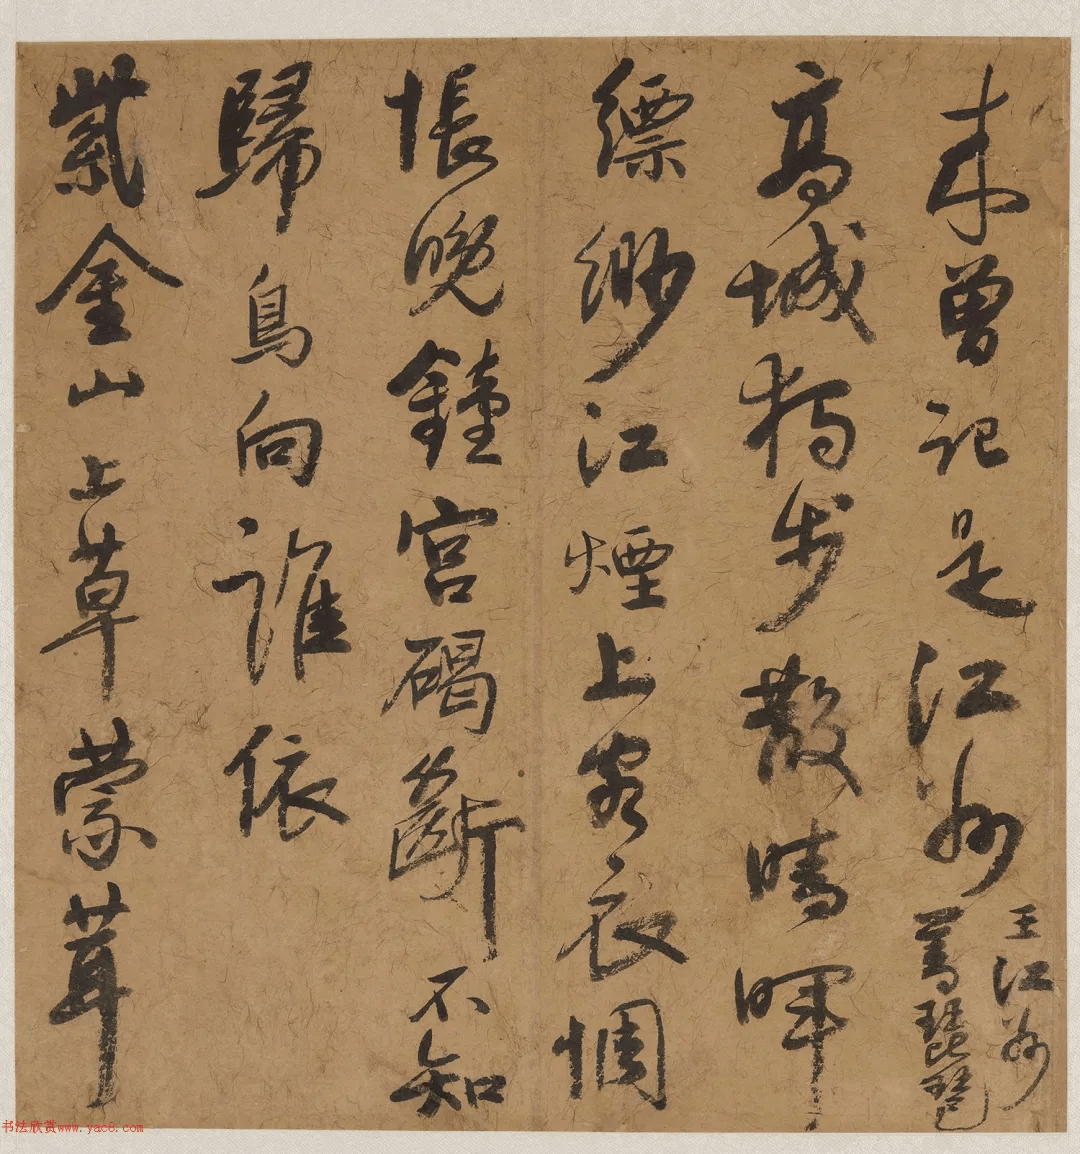 未曾記是江州
王江州
善琵琶
高城獨步散晴暉
縹緲江煙上客衣惆
悵晚鐘宮碣斷不知
歸鳥向誰依
紫金山上草蒙茸
书法欣赏www.yac8.com